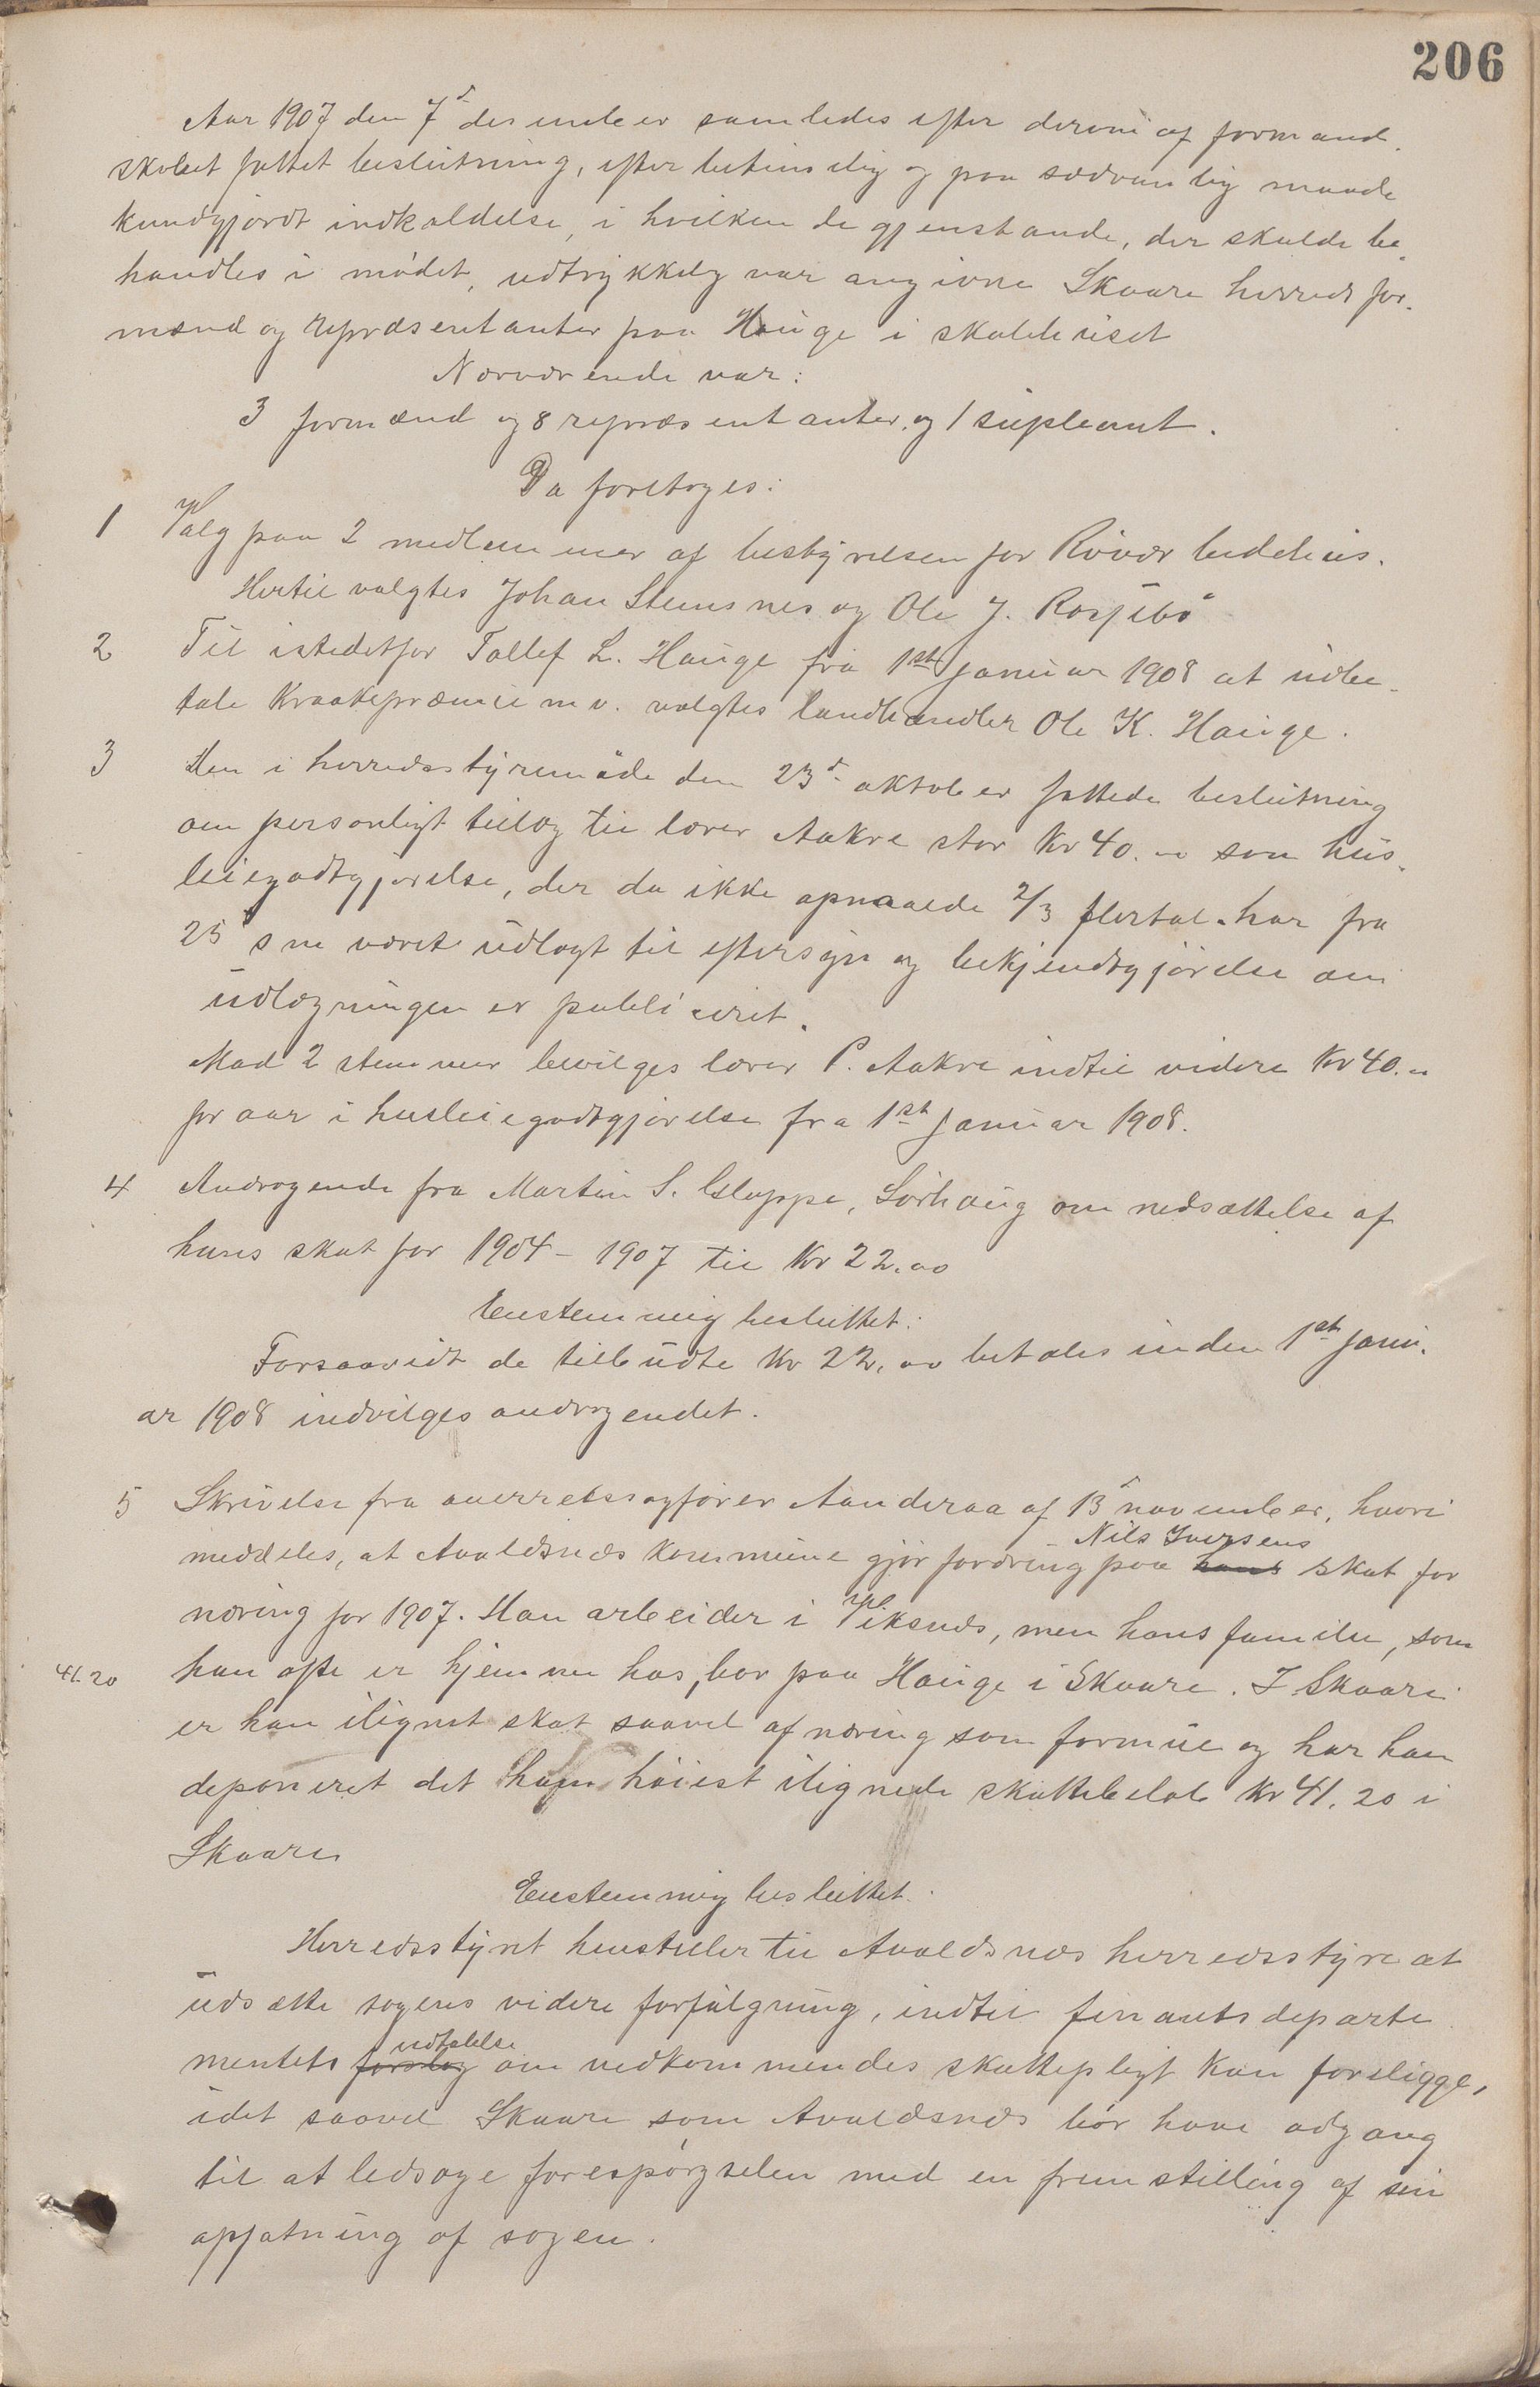 206
Aar 1907 den 7d december samledes efter derom af formand-
skabet fattet beslutning, efter betimelig og paa sædvanlig maade
kundgjordt indkaldelse, i hvilken de gjenstande, der skulde be-
handles i mødet, udtrykkelig var angivne Skaare herreds for-
mænd og repræsentanter paa Hauge i skolehuset
Nærværende var:
3 formænd og 8 repræsentanter og 1 supleant.
Da foretoges:
1 Valg paa 2 medlemmer af bestyrelsen for Røvær bedehus.
Hertil valgtes Johan Stemsnes og Ole J.
2 Til istedetfor Tollef L. Hauge fra 1st januar 1908 at udbe-
tale Kraakepræmie m v. valgtes landhandler Ole K. Hauge.
3 Den i herredsstyremøde den 23d oktober fattede beslutning
om personligt tillæg til lærer Aakre stor Kr 40.00 som hus-
leiegodtgjørelse, der da ikke opnaaede 2/3 flertal har fra
25d s m været udlagt til eftersyn og bekjendtgjørelse om
udlægningen er publiceret.
Mod 2 stemmer bevilges lærer P. Aakre indtil videre Kr 40.00
pr aar i husleiegodtgjørelse fra 1st januar 1908.
4 Andragende fra Martin S. Gloppe, Sørhaug om nedsættelse af
hans skat for 1904 - 1907 til Kr 22.00
Enstemmig besluttet:
Forsaavidt de tilbudte Kr 22.00 betales inden 1st janu-
ar 1908 indvilges andragendet.
5 Skrivelse fra overretssagfører Aanderaa af 13d november, hvori
meddeles, at Avaldsnæs kommune gjør fordring paa hans Nils Iversens skat for
næring for 1907. Han arbeider i Viksnæs, men hans familie, som
41.20 han ofte er hjemme hos, bor paa Hauge i Skaare. I Skaare
er han ilignet skat saavel af næring som formue og har han
deponeret det ham høiest ilignede skattebeløb Kr 41.20 i
Skaare
Enstemmig besluttet:
Herredsstyret henstiller til Avaldsnæs herredsstyre at
udsætte sagens videre forfølgning, indtil finantsdeparte
mentets forslag udtalelse om vedkommendes skattepligt kan foreligge,
idet saavel Skaare som Avaldsnæs bør have adgang
til at ledsage forespørgselen med en fremstilling af sin
opfatning af sagen.